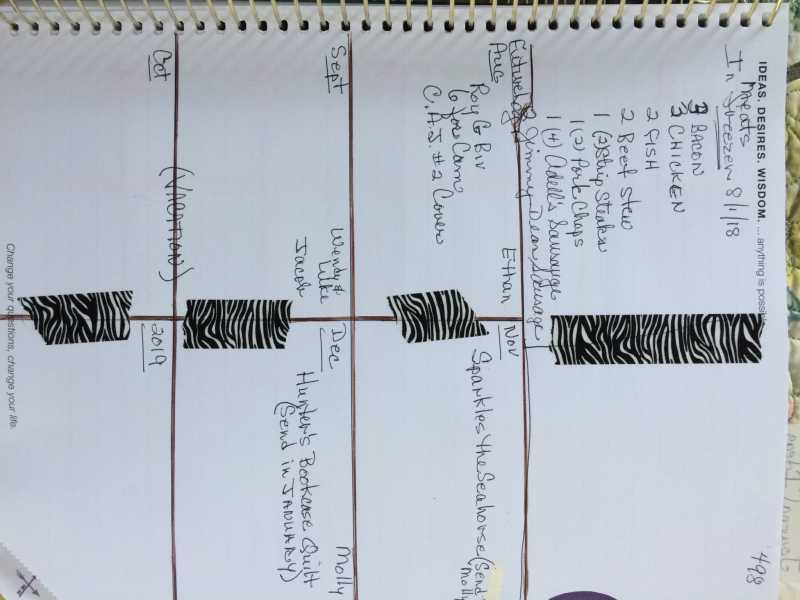 IDEAS. DESIRES. WISDOM. ... anything is possib
498
Meats
In Freezer 8/1/18
3 BACON
3 CHICKEN
2 FISH
2 Beef Stew
1 (2) Strip Steaks
1 (2) Pork Chops
1 (4) Adell's Sausage
2 Jimmy Dean Sausage
Aug
Ethan
Roy G Biv
6 for Cam
C.H.J. #2 Cover
Nov
Sparkles the Seahorse (Send
Molly
Sept
Wendy &
Luke
Jacob
Dec
Molly
Hunter's Bookcase Quilt
(Send in JANUARY)
Oct
(VACATION)
2019
Change your questions, change your life.